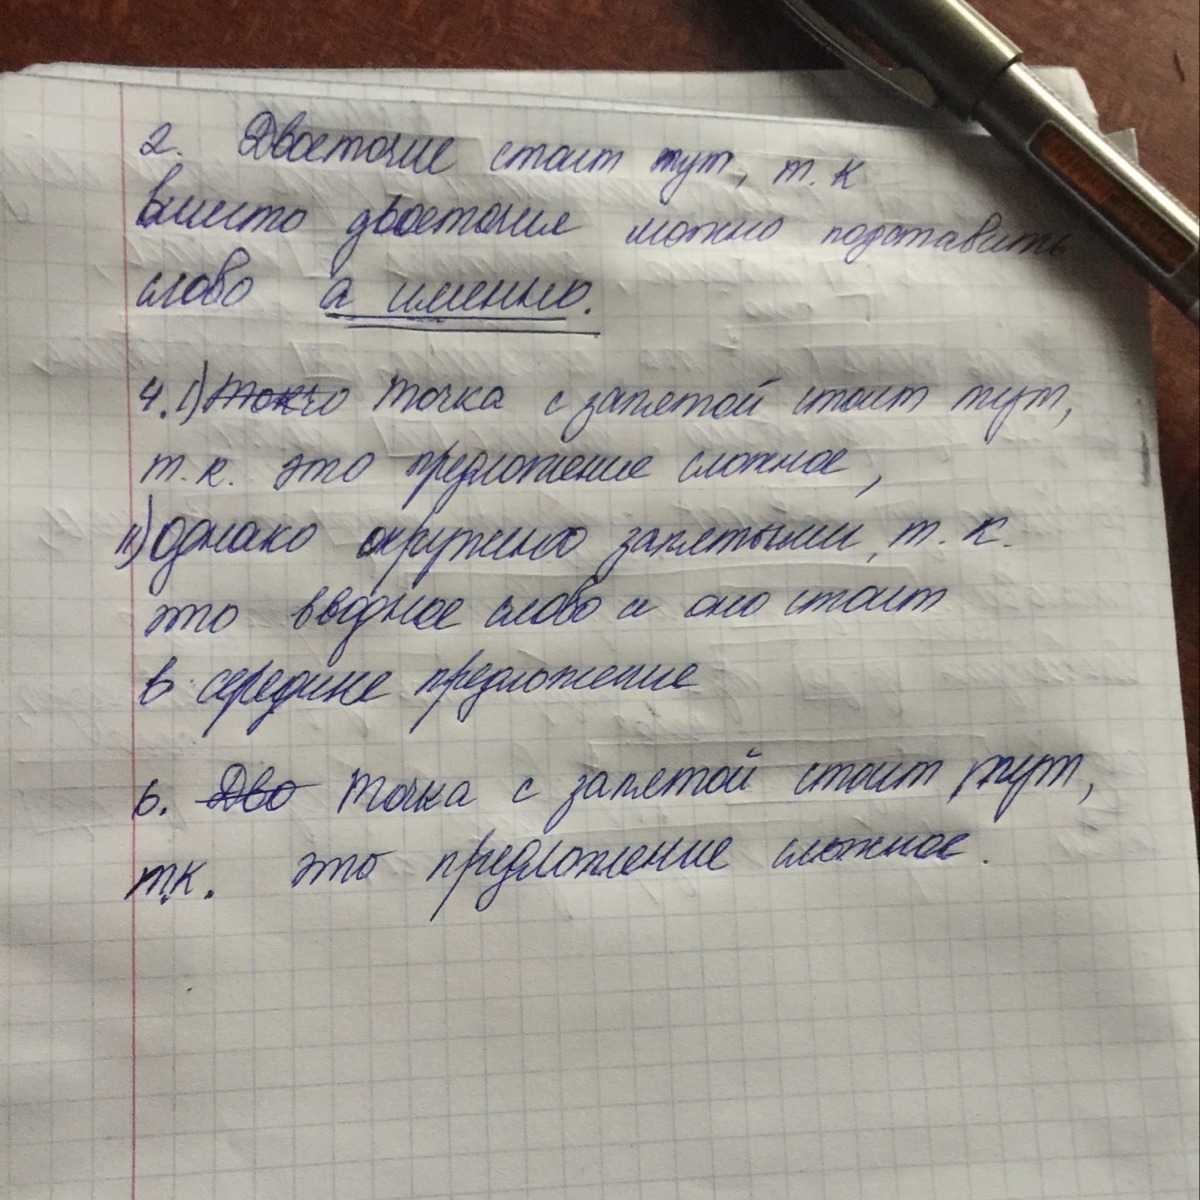 2. Двоеточие стоит тут, т.к
вместо двоеточия можно подставить
слово а именно.
4. 1) Точка с запятой стоит тут,
т.к. это предложение сложное,
II) Однако окружено запятыми, т.к.
это вводное слово и оно стоит
в середине предложение
6. Дво Точка с запятой стоит тут,
тк. это предложение сложное.